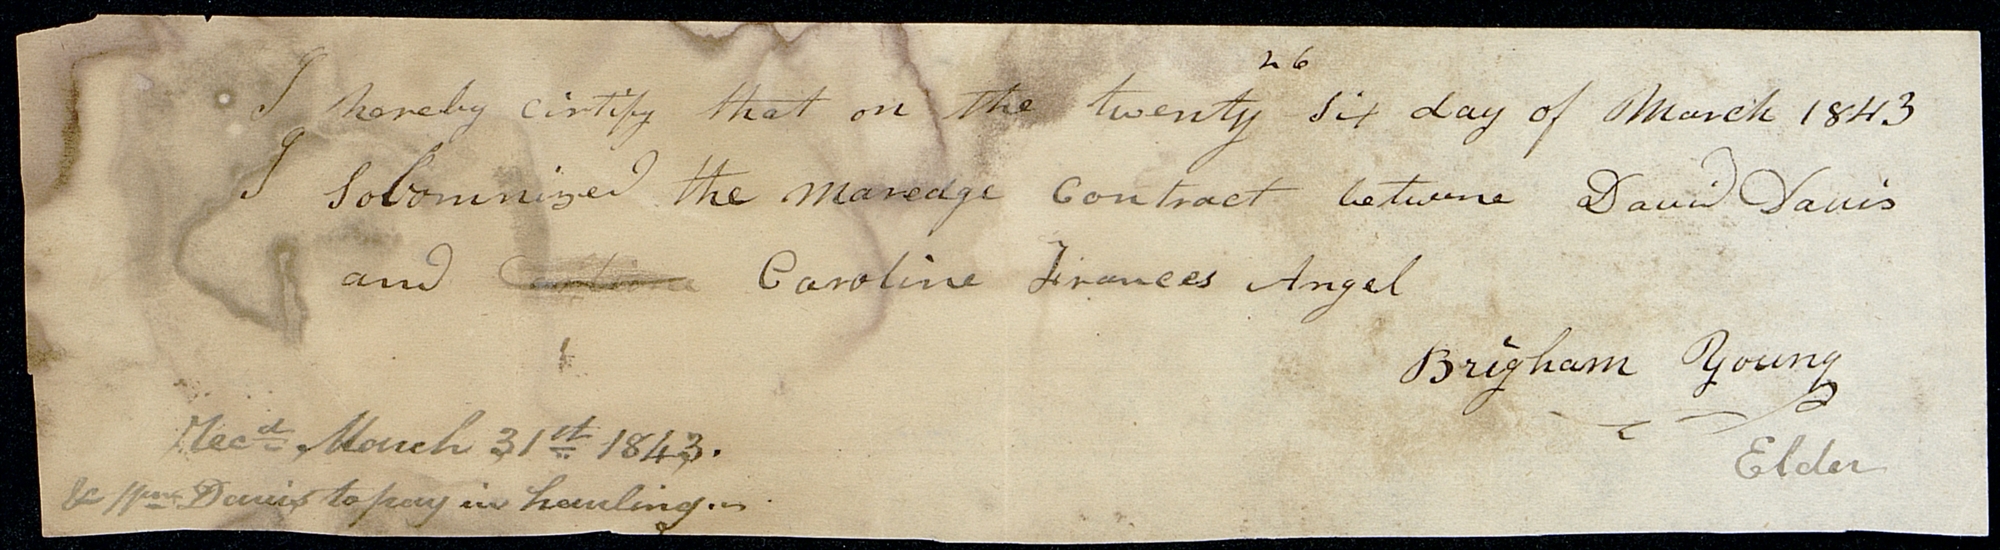 26
I hereby cirtify that on the twenty six day of March 1843
I Solomnized the maredge contract betwene David Davis
and Caroline Frances Angel
Brigham Young
Elder
Recd. March 31st 1843.
& Davis to pay in hauling.